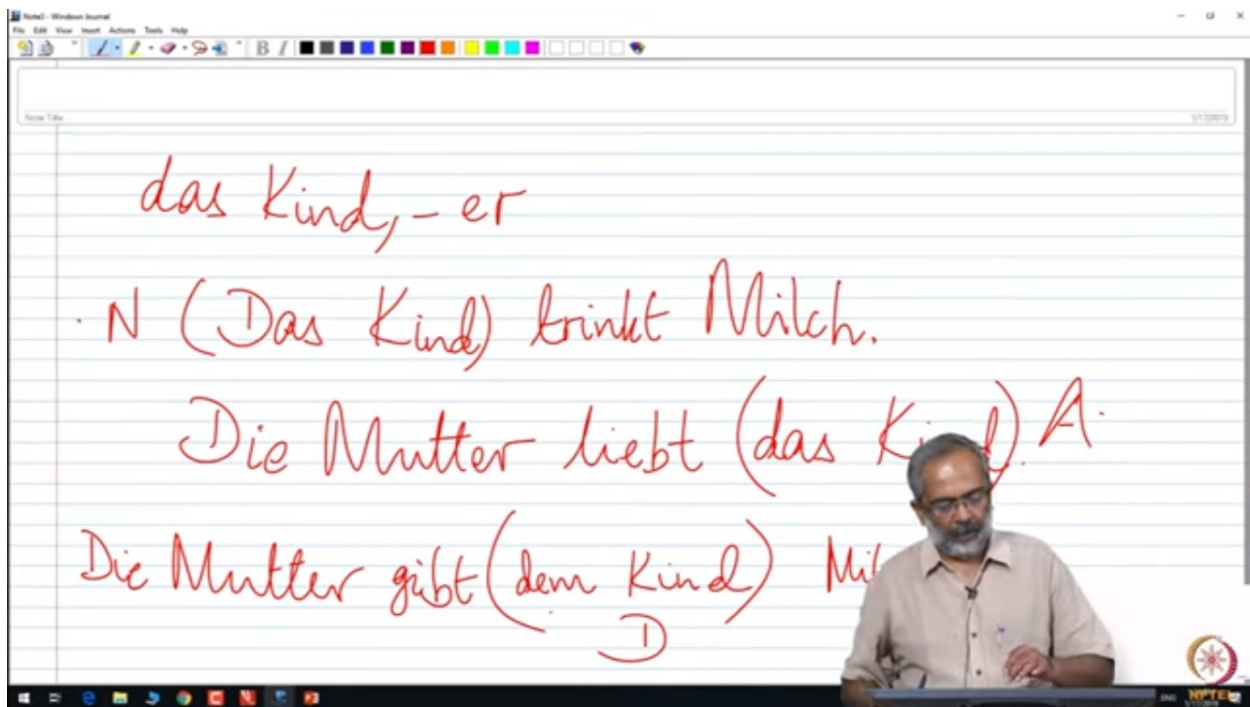 Note3 - Windows Journal
File Edit View Insert Actions Tools Help
B I
Note Title
1/17/2019
das Kind, - er
N (Das Kind) trinkt Milch.
Die Mutter liebt (das Kind). A.
Die Mutter gibt (dem Kind) Mil
D
ENG
1/17/2019
NPTEL